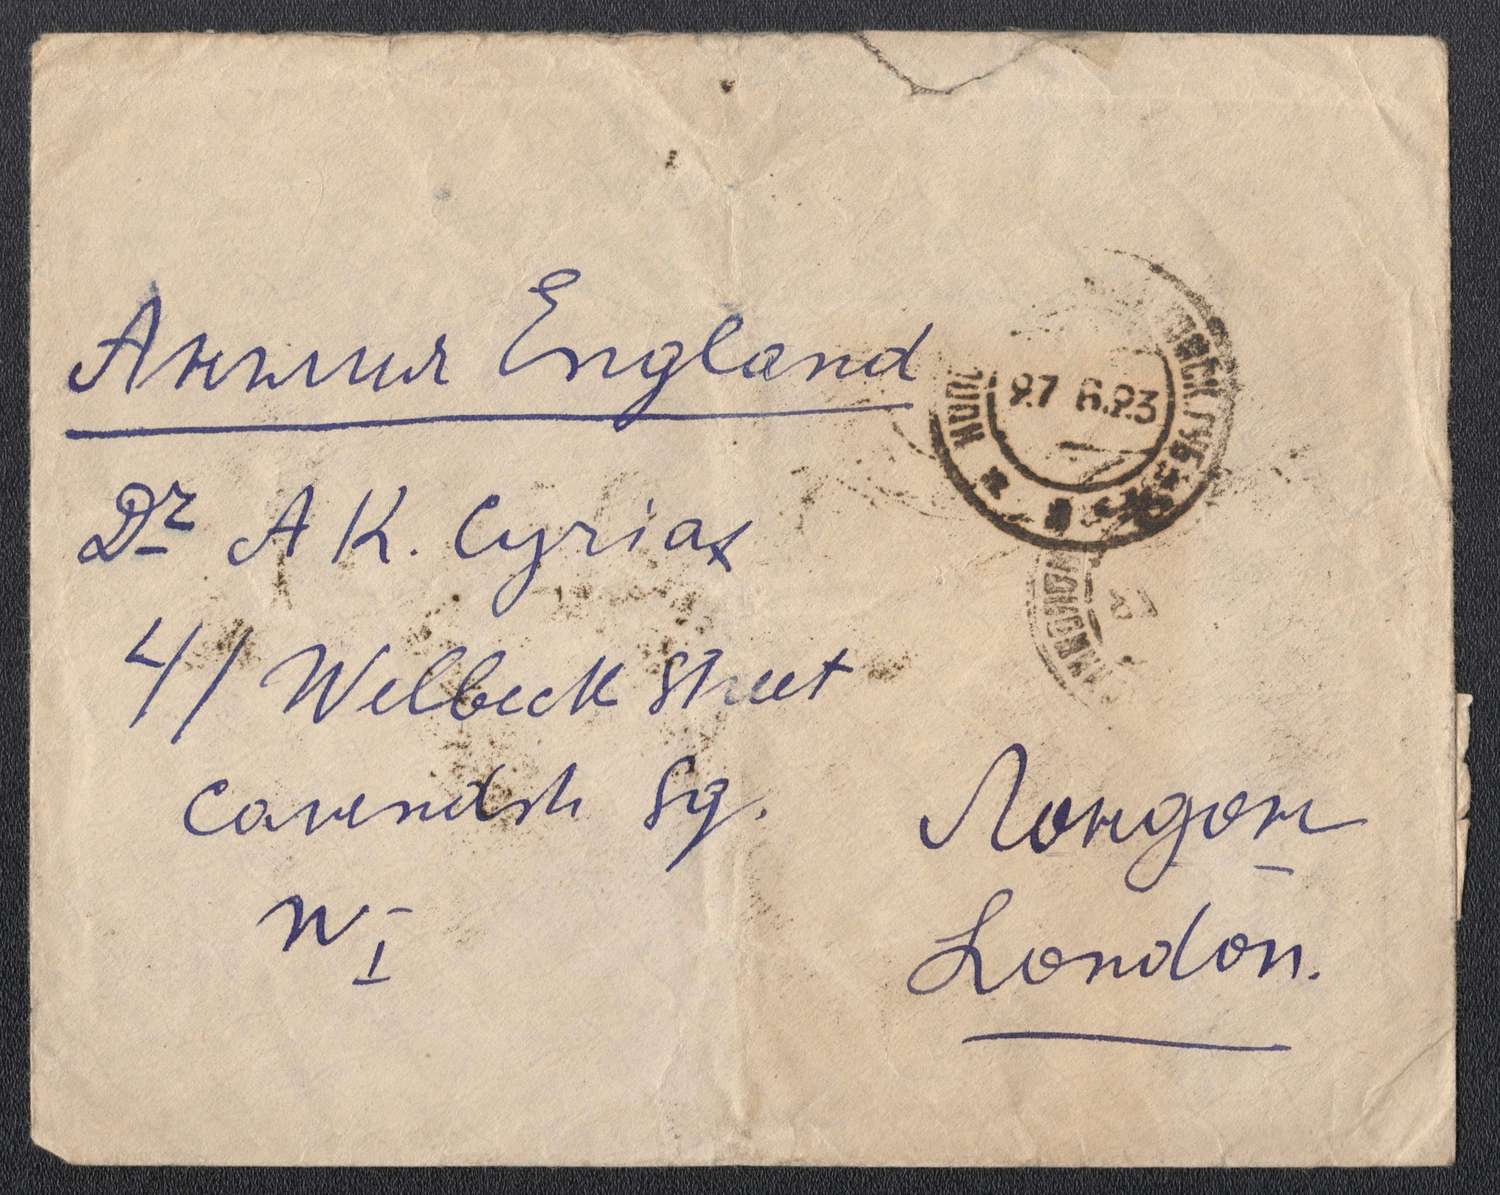 Англия England
Dr A K. Cyriax
41 Welbeck Street
Cavendsh Sq.
W I
Лондон
London.
27 6.23